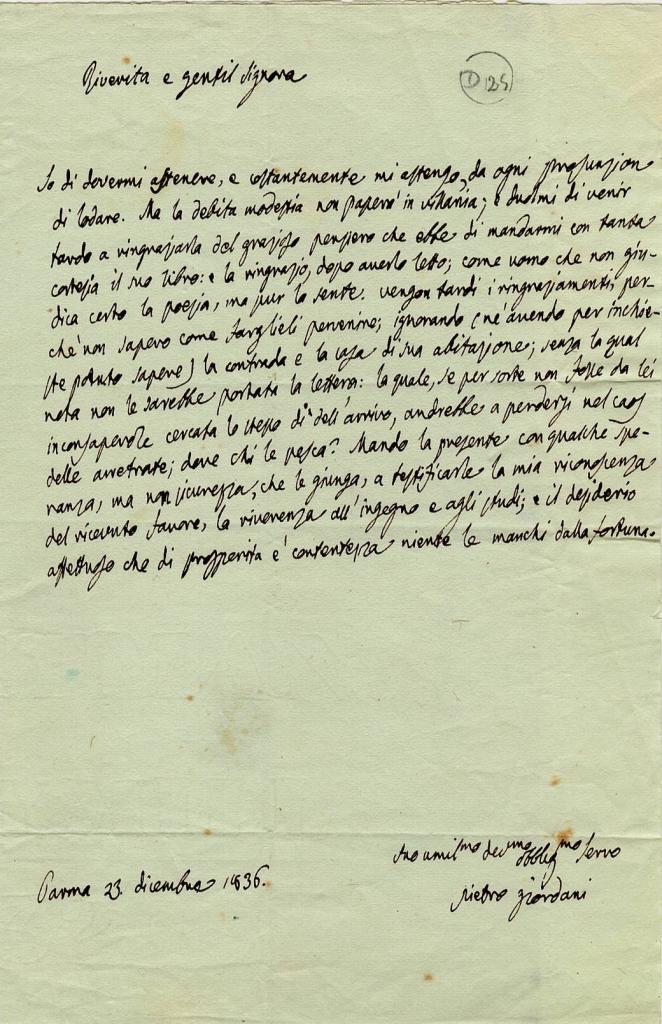 Riverita e gentil Signora
D 125
So di dovermi astenere, e costantemente mi astengo, da ogni prosunzion
di lodare. Ma la debita modestia non passerò in villania; e duolmi di venir
tardo a ringraziarla del grazioso pensiero che ebbe di mandarmi con tanta
cortesia il suo libro: e la ringrazio, dopo averlo letto; come uomo che non giu-
dica certo la poesia, ma pur la sente. vengon tardi i ringraziamenti; per-
chè non sapevo come farglieli pervenire; ignorando (nè avendo per inchie-
ste potuto sapere) la contrada e la casa di sua abitazione; senza la qual
nota non le sarebbe portata la lettera: la quale, se per sorte non fosse da lei
inconsapevole cercata lo stesso dì dell'arrivo, andrebbe a perdersi nel caos
delle arretrate; dove chi le pesca? Mando la presente con qualche spe-
ranza, ma non sicurezza, che le giunga, a testificarle la mia riconoscenza
del ricevuto favore, la riverenza all'ingegno e agli studi; e il desiderio
affettuoso che di prosperità e contentezza niente le manchi dalla fortuna.
suo umilmo devmo obbligmo servo
Parma 23. dicembre 1836.
Pietro Giordani